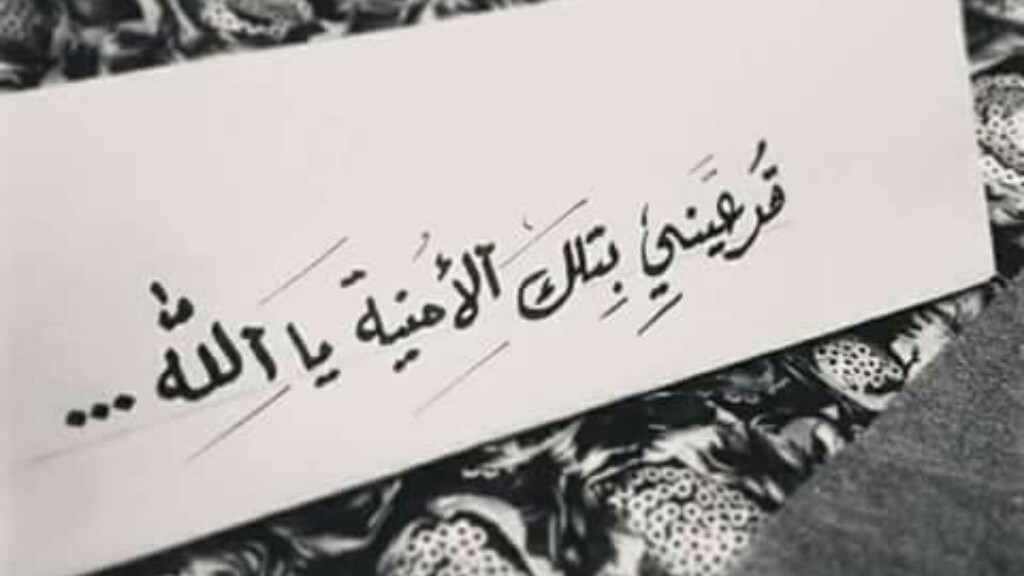 قُر عَيَني بِتِلكَ الأمُنية يا اللّٰه ...